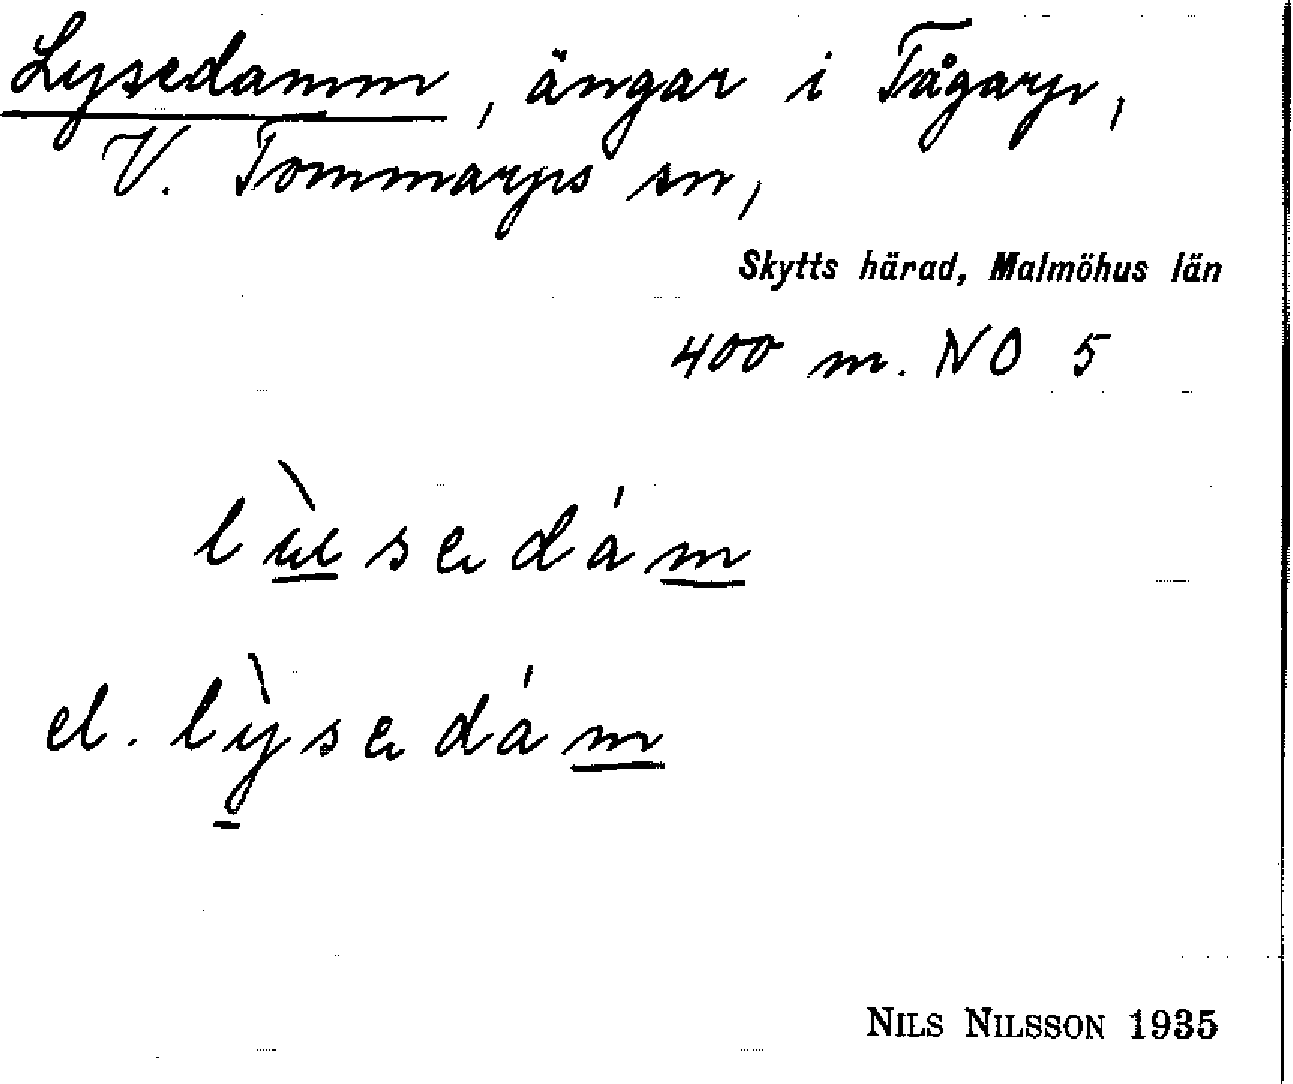 Lysedamm, ängar i Tågarp,
V. Tommarps sn,
Skytts härad, Malmöhus län
400 m. NO 5
lùsedám
el. lỳsedám
NILS NILSSON 1935